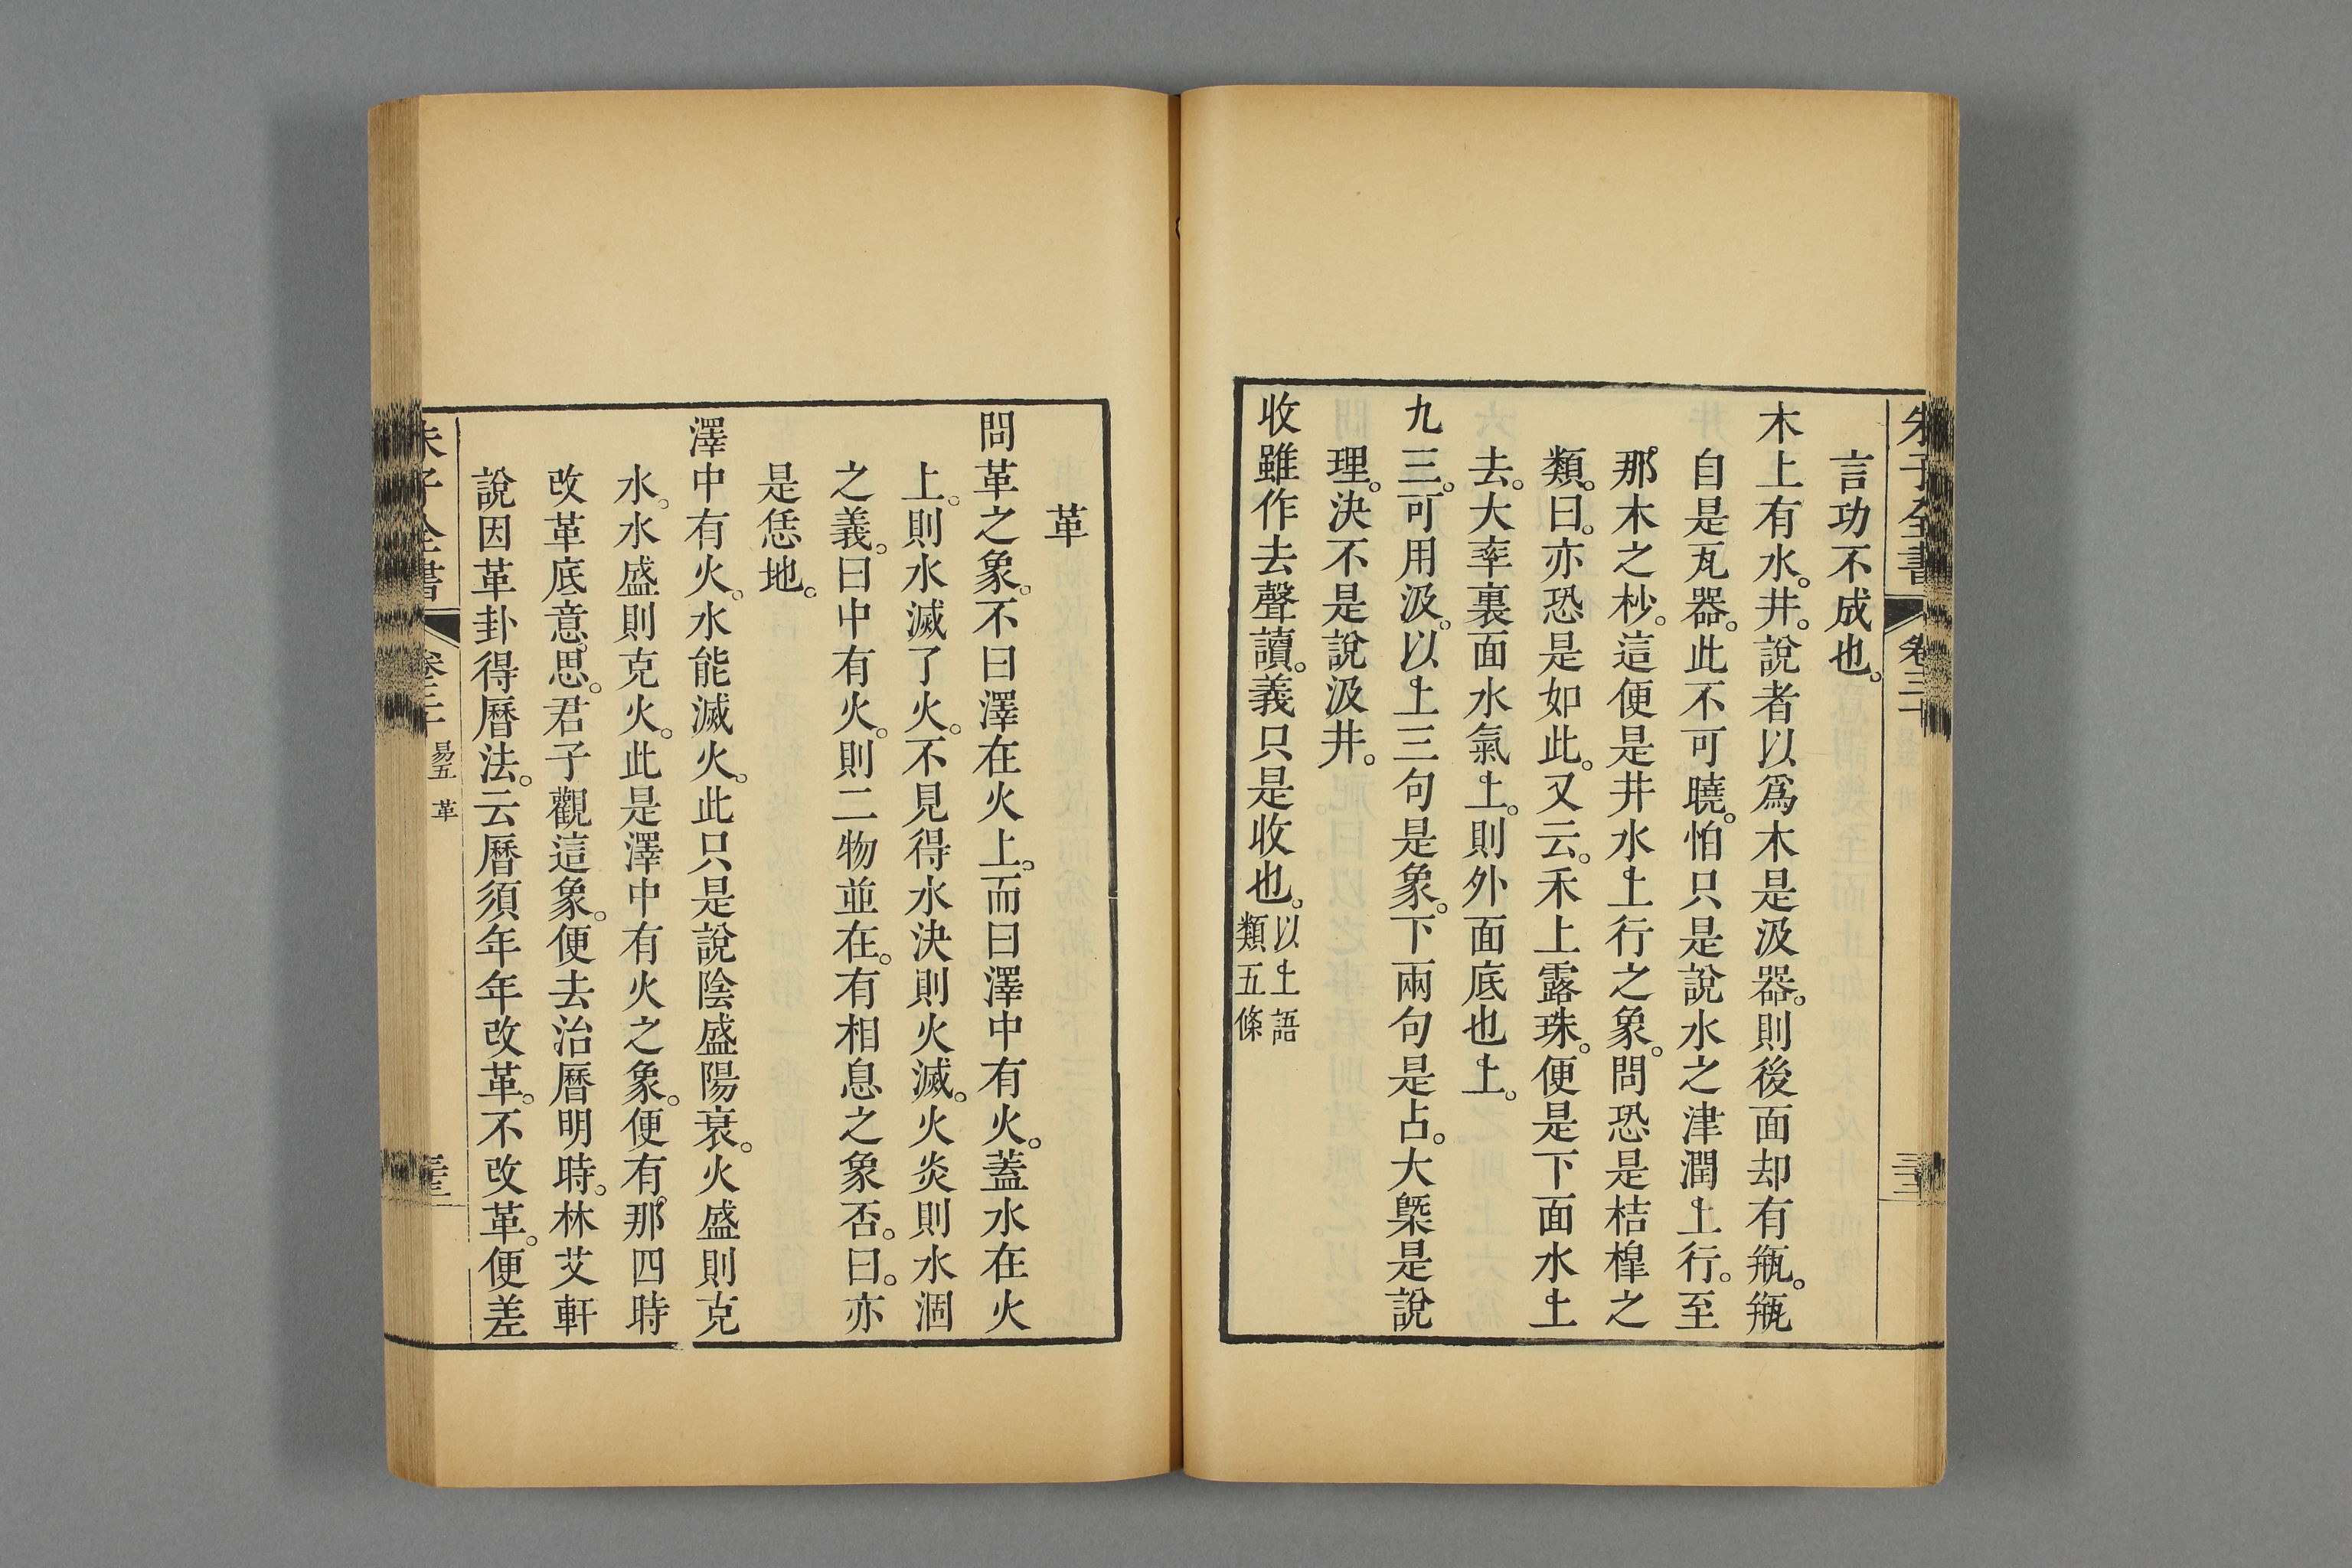 朱子全書 卷三十
言功不成也。
木上有水。井。說者以爲木是汲器。則後面却有瓶。瓶
自是瓦器。此不可曉。怕只是說水之津潤上行。至
那木之杪。這便是井水上行之象。問恐是桔橰之
類。曰。亦恐是如此。又云。禾上露珠。便是下面水上
去。大率裏面水氣上。則外面底也上。
九三。可用汲。以上三句是象。下兩句是占。大槩是說
理。決不是說汲井。
收雖作去聲讀。義只是收也。以上語
類五條
革
問革之象。不曰澤在火上。而曰澤中有火。蓋水在火
上。則水滅了火。不見得水決則火滅。火炎則水涸
之義。曰中有火。則二物並在。有相息之象否。曰。亦
是恁地。
澤中有火。水能滅火。此只是說陰盛陽衰。火盛則克
水。水盛則克火。此是澤中有火之象。便有那四時
改革底意思。君子觀這象。便去治曆明時。林艾軒
說因革卦得曆法。云曆須年年改革。不改革。便差
朱子全書 卷三十 易五 革